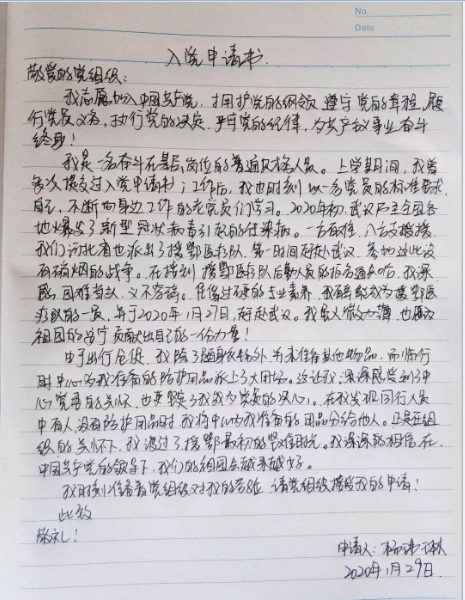 No.
Date
入党申请书
敬爱的党组织:
我志愿加入中国共产党,拥护党的纲领,遵守党的章程,履
行党员义务,执行党的决定,严守党的纪律,为共产主义事业奋斗
终身!
我是一名奋斗在基层岗位的普通
上学期间,我曾
多次提交过入党申请书;工作后,我也时刻以一名党员的标准要求
自己,不断向身边工作的老党员们学习。2020年初,武汉乃至全国各
地爆发了新型冠状病毒引起的肺炎。一方有难,八方支援,
我们河北省也派出了援鄂医疗队,第一时间奔赴武汉,参加这此没
有硝烟的战争。在接到援鄂医疗队后勤人员的指名通知后,我深
感国难当头,义不容辞。凭借过硬的专业素养,我最终成为援鄂医
疗队的一员,并于2020年1月27日,奔赴武汉。我虽人微力薄,也愿为
祖国的医疗贡献出自己的一份力量!
由于出行仓促,我除了随身衣物外并未准备其他物品,而临行
时中心为我准备的防护用品派上了大用场。这让我深深感受到了中
心党委的关怀,也更坚定了我成为党员的决心。在我发现同行人员
中有人没有防护用品时,我将中心为我准备的用品分给他人。正是在组
织的关怀下,我渡过了援鄂最初的艰难时光。我深深的相信,在
中国共产党的领导下,我们的祖国会越来越好。
我时刻准备着党组织对我的考验,请党组织接受我的申请!
此致
敬礼!
申请人:杨
2020年1月29日.